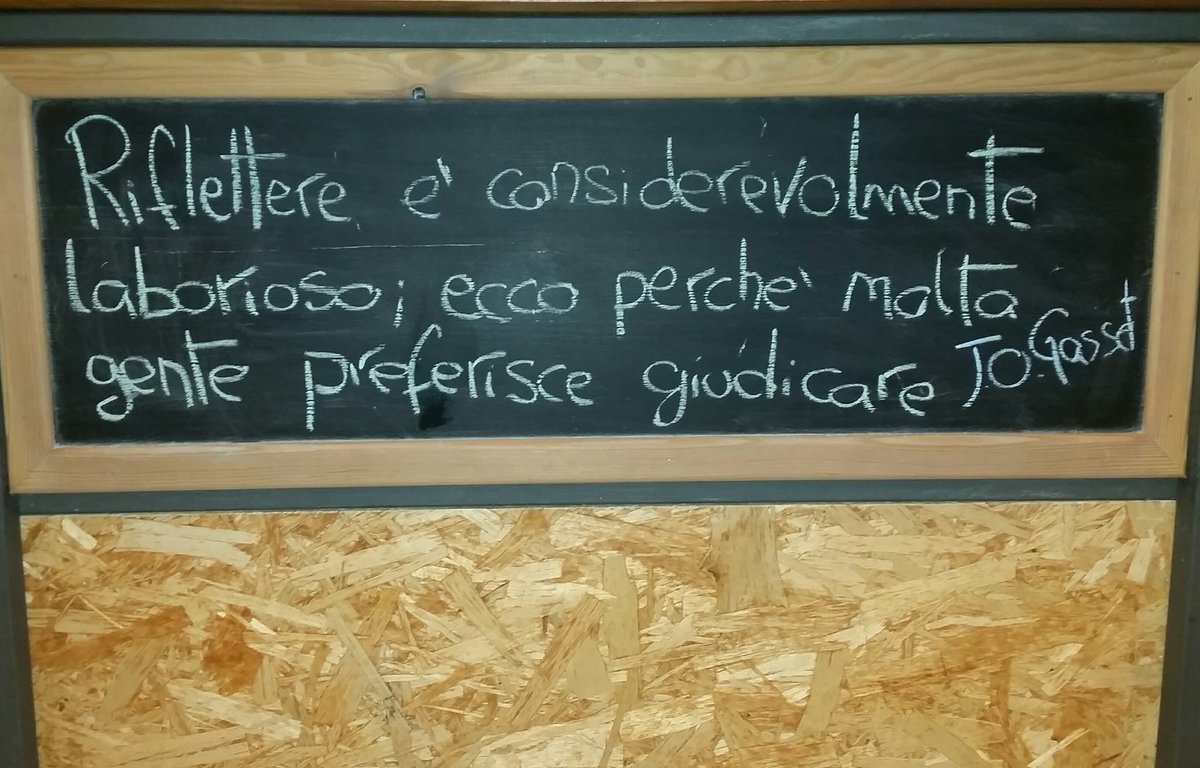 Riflettere e' considerevolmente
laborioso; ecco perche' molta
gente preferisce giudicare J.O. Gasset